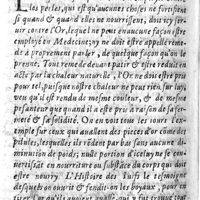 Les perles, qui est qu'aucunes choses ne fortifient
si quand & quand elles ne nourrissent, doit icy ser
uir contre l'Or, lequel ne peut en aucune façon estre
employé en Medecine: ny ne doit estre appellé reme-
de à proprement parler, de quelque façon qu'on le
prenne. Tout remede deuant patir & estre reduit en
acte par la chaleur naturelle, l'Or ne doit estre pris
pour tel, puisque nostre chaleur ne peut rien sur luy,
veu qu'il est rendu de mesme couleur, & de mesme
pesanteur que quand il a esté pris à raison de sa fer-
meté & sa solidité. On en voit tous les iours l'ex-
emple sur ceux qui auallent des pieces d'or come des
pilules, lesquelles ils rendent par bas sans aucune di-
minution de poids; nulle portion d'icelles ne se con-
uertissant en nourriture ou substance du corps qui doit
estre nourry. L'Histoire des Iuifs le tesmoigne
desquels on ouurit & fendit on les boyaux, pour en
tirer l'or qu'ils auoient auallé, qui y fut trouué tout